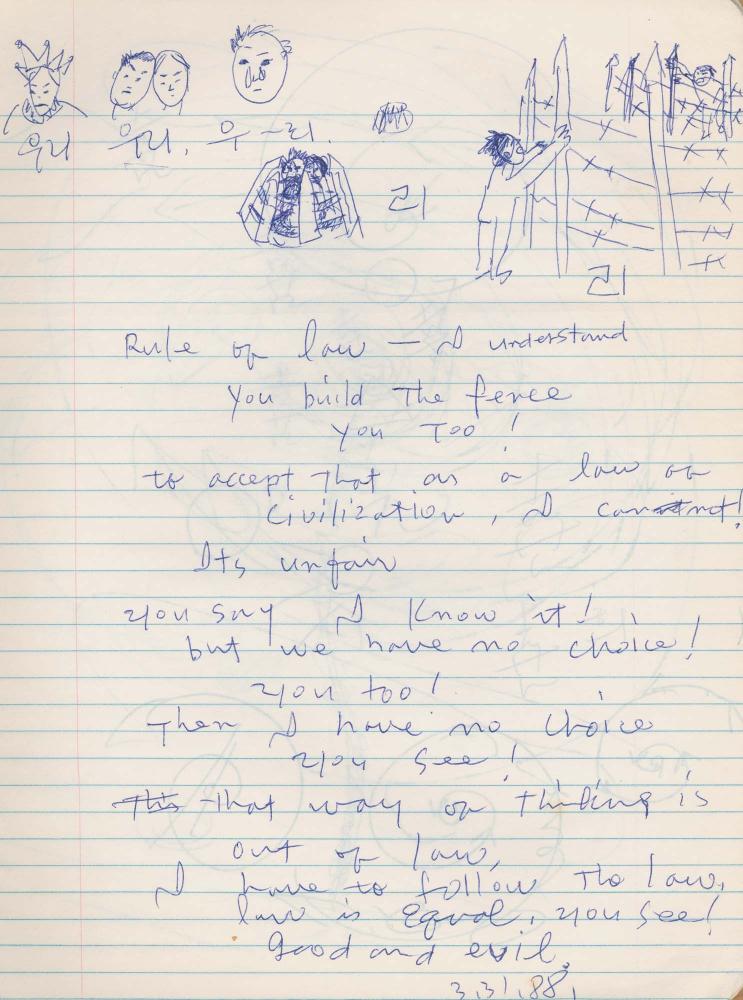 우리 우리, 우~리.
리
리
Rule of law — I understand
You build The fence
You Too!
to accept That as a law of
civilization, I cannot!
Its unfair
you say I know it!
but we have no choice!
you too!
Then I have no choice
you see!
This That way of thinking is
out of law,
I have to follow The law.
law is Equal, you see!
Good and evil.
3.31.88.